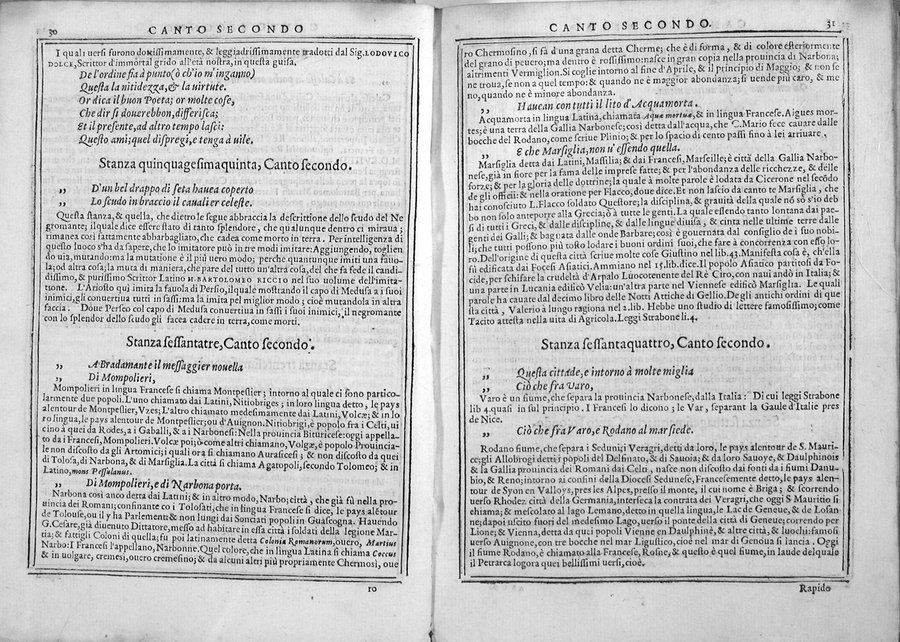 30 CANTO SECONDO
I quali uersi furono dottissimamente, & leggiadrissimamente tradotti dal Sig. LODOVICO
DOLCE, Scrittor d'immortal grido all'età nostra, in questa guisa.
De l'ordine fia à punto (ò ch'io m'inganno)
Questa la nitidezza, & la uirtute.
Or dica il buon Poeta; or molte cose,
Che dir si douerebbon, differisca;
Et il presente, ad altro tempo lasci:
Questo ami; quel dispregi, e tenga à uile.
Stanza quinquagesimaquinta, Canto secondo.
,, D'un bel drappo di seta hauea coperto
,, Lo scudo in braccio il caualier celeste.
Questa stanza, & quella, che dietro le segue abbraccia la descrittione dello scudo del Ne
gromante; il quale dice essere stato di tanto splendore, che qualunque dentro ci miraua;
rimanea così fattamente abbarbagliato, che cadea come morto in terra. Per intelligenza di
questo luoco s'ha da sapere, che lo imitatore può in tre modi imitare: Aggiungendo, toglien
do uia, mutando: ma la mutatione è il più uero modo; perche quantunque imiti una fauo
la; od altra cosa; la muta di maniera, che pare del tutto un'altra cosa, del che fa fede il candi
dissimo, & purissimo Scrittor Latino M. BARTOLOMEO RICCIO nel suo uolume dell'imita-
tione. L'Ariosto quì imita la fauola di Perseo, il quale mostrando il capo di Medusa a i suoi
inimici, gli conuertiua tutti in sassi: ma la imita pel miglior modo; cioè mutandola in altra
faccia. Doue Perseo col capo di Medusa conuertiua in sassi i suoi inimici, il negromante
con lo splendor dello scudo gli facea cadere in terra, come morti.
Stanza sessantatre, Canto secondo.
,, A Bradamante il messaggier nouella
,, Di Mompolieri,
Mompolieri in lingua Francese si chiama Montpeslier; intorno al quale ci sono partico-
larmente due popoli. L'uno chiamato dai Latini, Nitiobriges; in loro lingua detto, le pays
alentour de Montpeslier, Vzes; L'altro chiamato medesimamente dai Latini, Volcæ; & in lo
ro lingua, le pays alentour de Montpeslier; ou d'Auignon. Nitiobrigi, è popolo fra i Celti, ui
cino à quei da Rodes, a i Gaballi, & a i Narbonesi: Nella prouincia Bituricese: oggi appella-
to da i Francesi, Mompolieri. Volcæ poi; ò come altri chiamano, Volgæ, è popolo Prouincia-
le non discosto da gli Artomici; i quali ora si chiamano Aurascesi; & non discosto da quei
di Tolosa, di Narbona, & di Marsiglia. La città si chiama Agatopoli, secondo Tolomeo; & in
Latino, mons Pessulanus.
,, Di Mompolieri, e di Narbona porta.
Narbona così anco detta dai Latini; & in altro modo, Narbo; città, che già fù nella pro-
uincia dei Romani; confinante co i Tolosati, che in lingua Francese si dice, le pays alétour
de Tolouse, ou il y ha Parlement: & non lungi dai Sonciati popoli in Guascogna. Hauendo
G. Cesare, già diuenuto Dittatore, messo ad habitare in essa città i soldati della legione Mar-
tia; & fattigli Coloni di quella; fu poi latinamente detta Colonia Romanorum, ouero, Martius
Narbo: I Francesi l'appellano, Narbonne. Quel colore, che in lingua Latina si chiama Coccus
& in uolgare, cremesì, ouero cremesino; & da alcuni altri più propriamente Chermosì, oue
10
CANTO SECONDO. 31
ro Chermosino, si fà d'una grana detta Cherme; che è di forma, & di colore esteriormente
del grano di peuero; ma dentro è rossissimo: nasce in gran copia nella prouincia di Narbona;
altrimenti Vermiglion. Si coglie intorno al fine d'Aprile, & il principio di Maggio; & non se
ne troua, se non a quel tempo: & quando ne è maggior abondanza; si uende più caro, & me
no, quando ne è minore abondanza.
,, Hauean con tutti il lito d'Acquamorta.
Acquamorta in lingua Latina, chiamata Aquæ mortuæ, & in lingua Francese. Aigues mor-
tes; è una terra della Gallia Narbonese; così detta dall'acqua, che C. Mario fece cauare dalle
bocche del Rodano, come scriue Plinio; & per lo spacio di cento passi fino à lei arriuare.
,, E che Marsiglia, non u'essendo quella.
Marsiglia detta dai Latini, Massilia; & dai Francesi, Marseille; è città della Gallia Narbo-
nese, già in fiore per la fama delle imprese fatte; & per l'abondanza delle ricchezze, & delle
forze; & per la gloria delle dottrine; la quale à molte parole è lodata da Cicerone nel secōdo
de gli officii: & nella oratione per Flacco, doue dice. Et non lascio da canto te Marsiglia, che
hai conosciuto L. Flacco soldato Questore; la disciplina, & grauità della quale nō sò s'io deb
bo non solo anteporre alla Grecia; ò à tutte le genti. La quale essendo tanto lontana dai pae-
si di tutti i Greci, & dalle discipline, & dalle lingue diuisa, & cinta nelle ultime terre dalle
genti dei Galli; & bagnata dalle onde Barbare; così è gouernata dal consiglio de i suo nobi-
li; che tutti possono più tosto lodare i buoni ordini suoi, che fare à concorrenza con esso lo-
ro. Dell'origine di questa città scriue molte cose Giustino nel lib. 43. Manifesta cosa è, ch'ella
fù edificata dai Focesi Asiatici. Ammiano nel 15. lib. dice. Il popolo Asiatico partitosi da
Focide, per schifare la crudeltà d'Arpalo Luocotenente del Rè Ciro, con naui andò in Italia; &
una parte in Lucania edificò Velia: un'altra parte nel Viennese edificò Marsiglia. Le quali
parole ha cauate dal decimo libro delle Notti Attiche di Gellio. De gli antichi ordini di que
sta città, Valerio à lungo ragiona nel 2. lib. Hebbe uno studio di lettere famosissimo; come
Tacito attesta nella uita di Agricola. Leggi Strabone li. 4.
Stanza sessantaquattro, Canto secondo.
,, Questa cittade, e intorno à molte miglia
,, Ciò che fra Varo,
Varo è un fiume, che separa la prouincia Narbonese, dalla Italia: Di cui leggi Strabone
lib 4. quasi in sul principio. I Francesi lo dicono; le Var, separant la Gaule d'Italie pres
de Nice.
,, Ciò che fra Varo, e Rodano al mar siede.
Rodano fiume, che separa i Seduni, Veragri, detti da loro, le pays alentour de S. Mauri-
ce; gli Allobrogi detti i popoli del Delfinato, & di Sauoia; & da loro Sauoye, & Daulphinois
& la Gallia prouincia dei Romani dai Celti, nasce non discosto dai fonti da i fiumi Danu-
bio, & Reno; intorno ai confini della Diocesi Sedunese, Francesmente detto, le pays alen-
tour de Syon en Valloys, pres les Alpes, presso il monte, il cui nome è Briga; & scorrendo
uerso Rhodez città della Germania, interseca la contrata dei Veragri, che oggi S Mauritio si
chiama; & mescolato al lago Lemano, detto in quella lingua, le Lac de Geneue, & de Losan-
ne; dapoi uscito fuori del medesimo Lago, uerso il ponte della città di Geneue; correndo per
Lione; & Vienna, detta da quei popoli Vienne en Daulphiné, & altre città, & luochi: famosi
uerso Auignone, con tre bocche nel mar Ligustico, cioè nel mar di Genoua si lancia. Oggi
il fiume Rodano, è chiamato alla Francese, Rosne, & questo è quel fiume, in laude del quale
il Petrarca logora quei bellissimi uersi, cioè.
Rapido